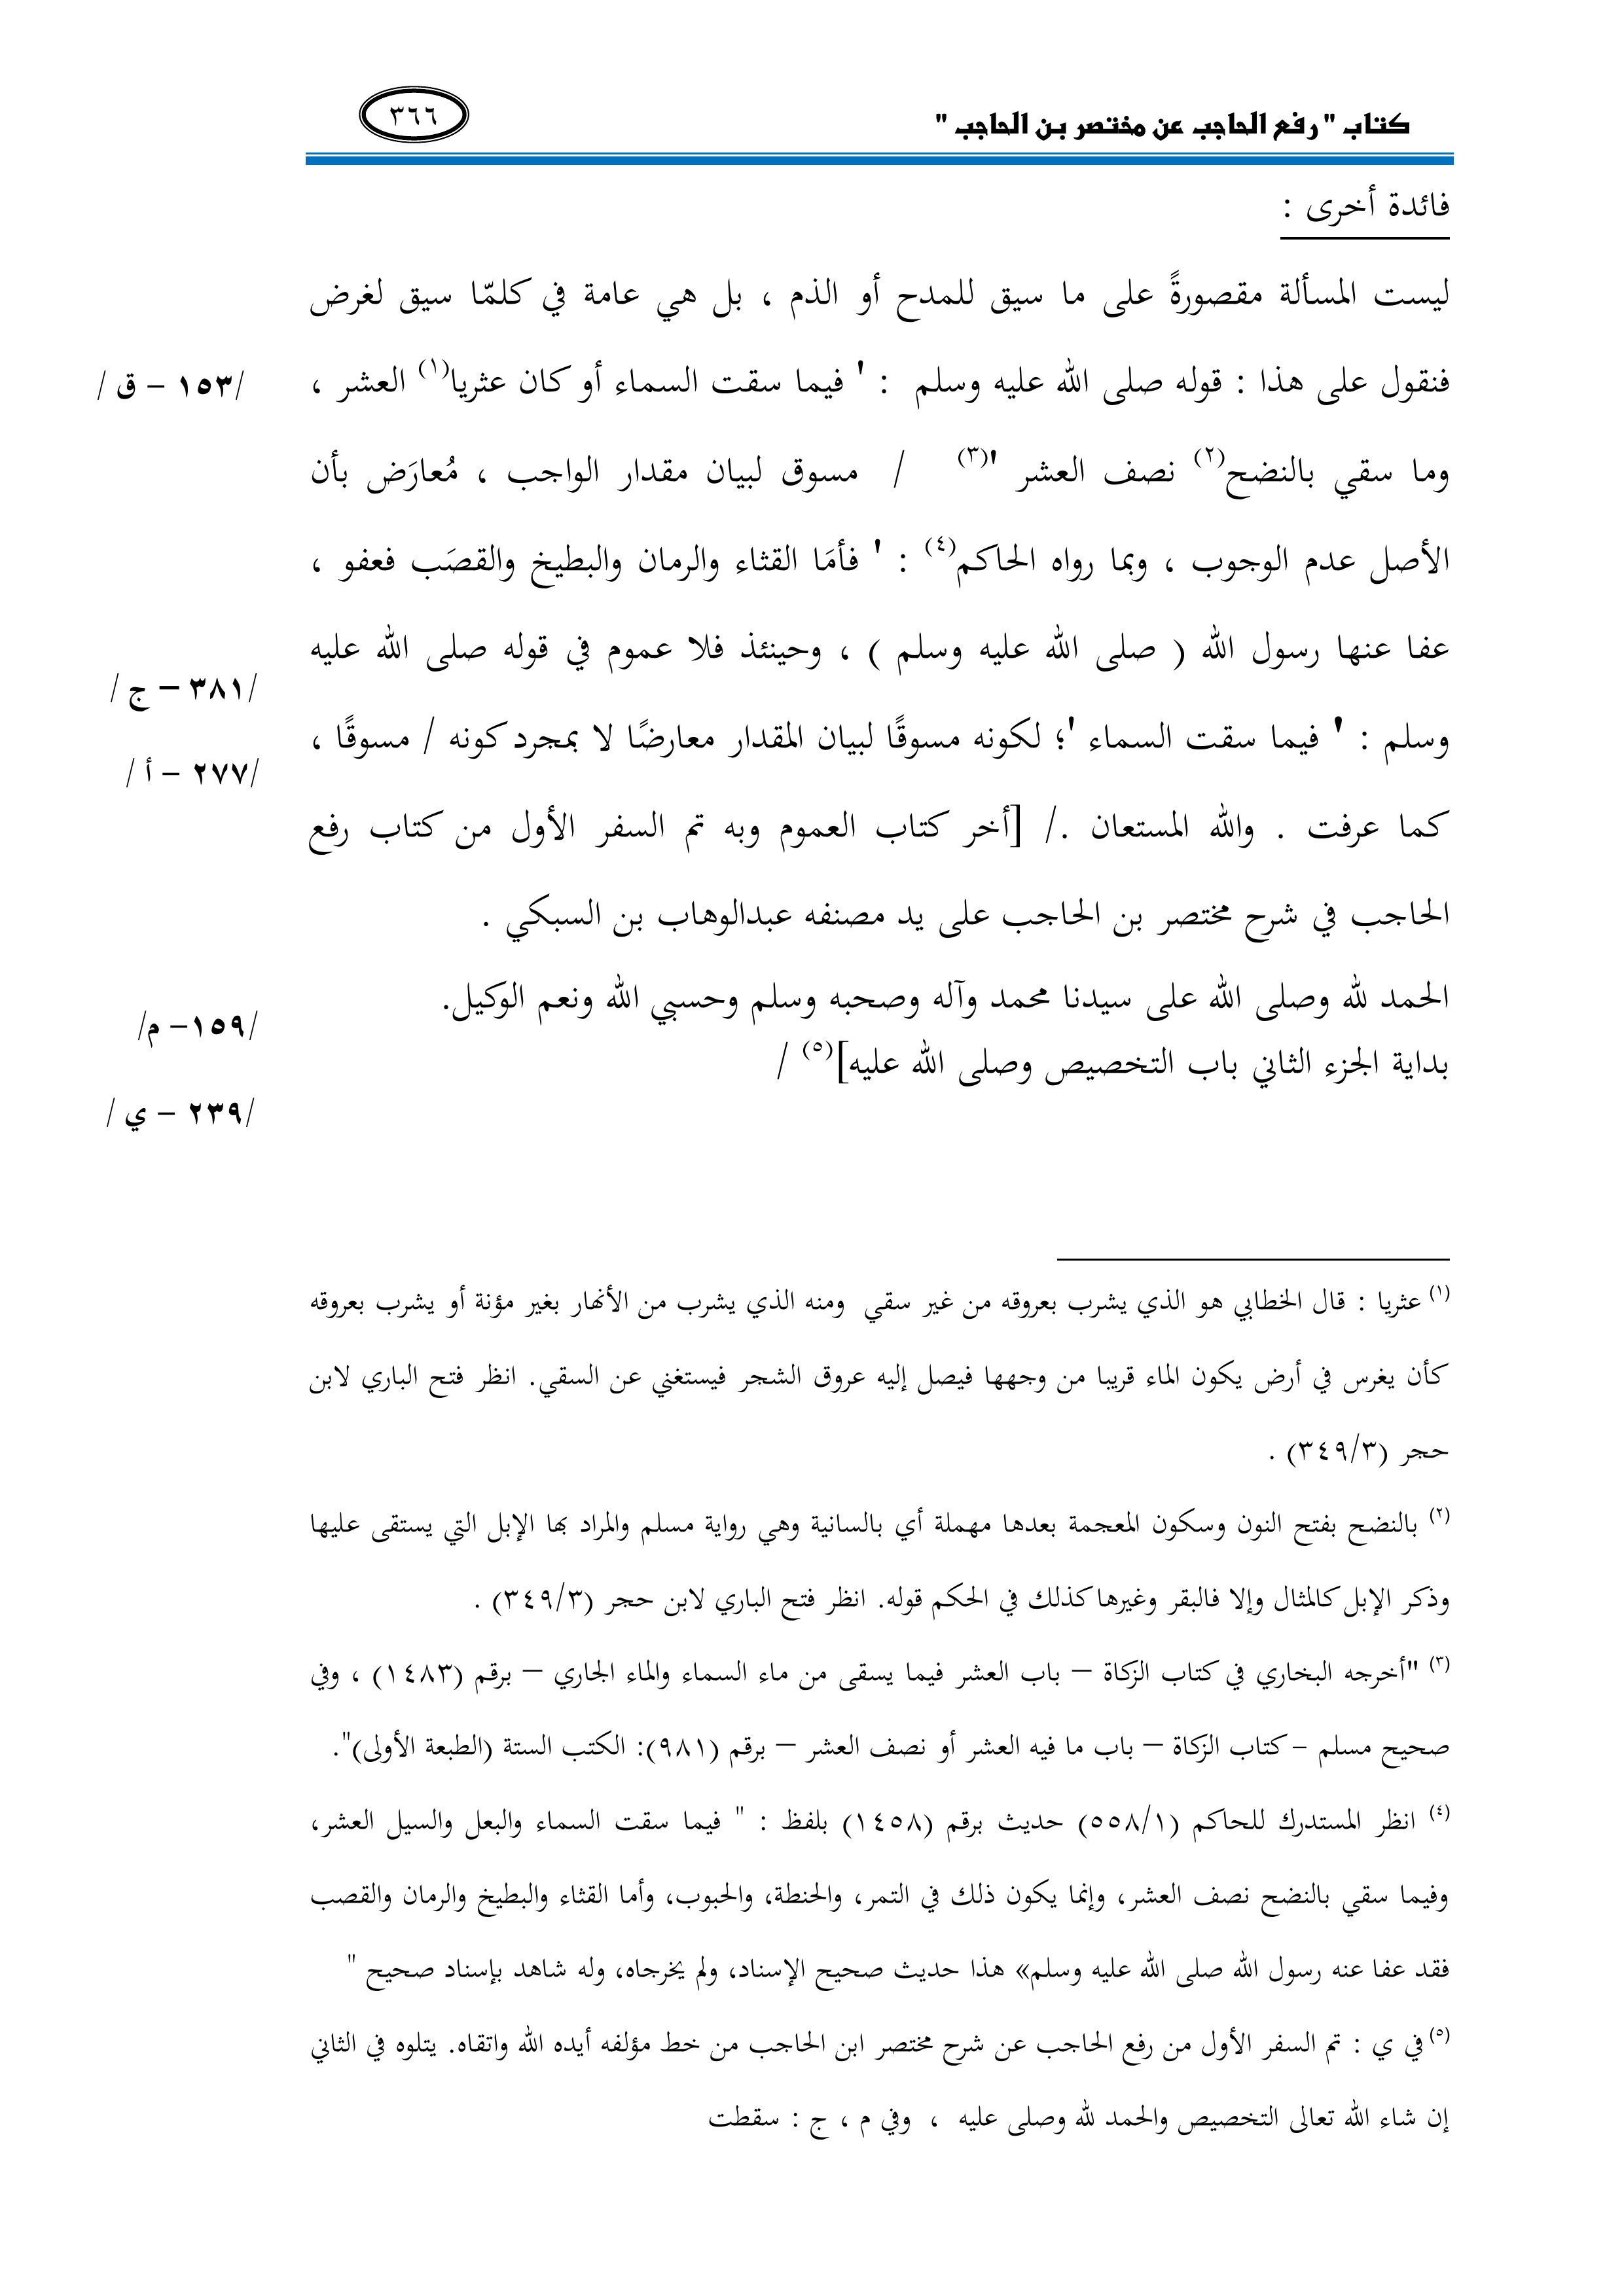 كتاب " رفع الحاجب عن مختصر بن الحاجب "
٣٦٦
فائدة أخرى :
ليست المسألة مقصورةً على ما سيق للمدح أو الذم ، بل هي عامة في كلمّا سيق لغرض
فنقول على هذا : قوله صلى الله عليه وسلم : ' فيما سقت السماء أو كان عثريا(١) العشر ،
/١٥٣ – ق /
وما سقي بالنضح(٢) نصف العشر '(٣) / مسوق لبيان مقدار الواجب ، مُعارَض بأن
الأصل عدم الوجوب ، وبما رواه الحاكم(٤) : ' فأمَا القثاء والرمان والبطيخ والقصَب فعفو ،
عفا عنها رسول الله ( صلى الله عليه وسلم ) ، وحينئذ فلا عموم في قوله صلى الله عليه
/٣٨١ – ج /
وسلم : ' فيما سقت السماء '؛ لكونه مسوقًا لبيان المقدار معارضًا لا بمجرد كونه / مسوقًا ،
/٢٧٧ – أ /
كما عرفت . والله المستعان ./ [أخر كتاب العموم وبه تم السفر الأول من كتاب رفع
الحاجب في شرح مختصر بن الحاجب على يد مصنفه عبدالوهاب بن السبكي .
الحمد لله وصلى الله على سيدنا محمد وآله وصحبه وسلم وحسبي الله ونعم الوكيل.
/١٥٩– م/
بداية الجزء الثاني باب التخصيص وصلى الله عليه](٥) /
/٢٣٩ – ي /
(١) عثريا : قال الخطابي هو الذي يشرب بعروقه من غير سقي ومنه الذي يشرب من الأنهار بغير مؤنة أو يشرب بعروقه
كأن يغرس في أرض يكون الماء قريبا من وجهها فيصل إليه عروق الشجر فيستغني عن السقي. انظر فتح الباري لابن
حجر (٣٤٩/٣) .
(٢) بالنضح بفتح النون وسكون المعجمة بعدها مهملة أي بالسانية وهي رواية مسلم والمراد بها الإبل التي يستقى عليها
وذكر الإبل كالمثال وإلا فالبقر وغيرها كذلك في الحكم قوله. انظر فتح الباري لابن حجر (٣٤٩/٣) .
(٣) "أخرجه البخاري في كتاب الزكاة – باب العشر فيما يسقى من ماء السماء والماء الجاري – برقم (١٤٨٣) ، وفي
صحيح مسلم – كتاب الزكاة – باب ما فيه العشر أو نصف العشر – برقم (٩٨١): الكتب الستة (الطبعة الأولى)".
(٤) انظر المستدرك للحاكم (٥٥٨/١) حديث برقم (١٤٥٨) بلفظ : " فيما سقت السماء والبعل والسيل العشر،
وفيما سقي بالنضح نصف العشر، وإنما يكون ذلك في التمر، والحنطة، والحبوب، وأما القثاء والبطيخ والرمان والقصب
فقد عفا عنه رسول الله صلى الله عليه وسلم» هذا حديث صحيح الإسناد، ولم يخرجاه، وله شاهد بإسناد صحيح "
(٥) في ي : تم السفر الأول من رفع الحاجب عن شرح مختصر ابن الحاجب من خط مؤلفه أيده الله واتقاه. يتلوه في الثاني
إن شاء الله تعالى التخصيص والحمد لله وصلى عليه ، وفي م ، ج : سقطت